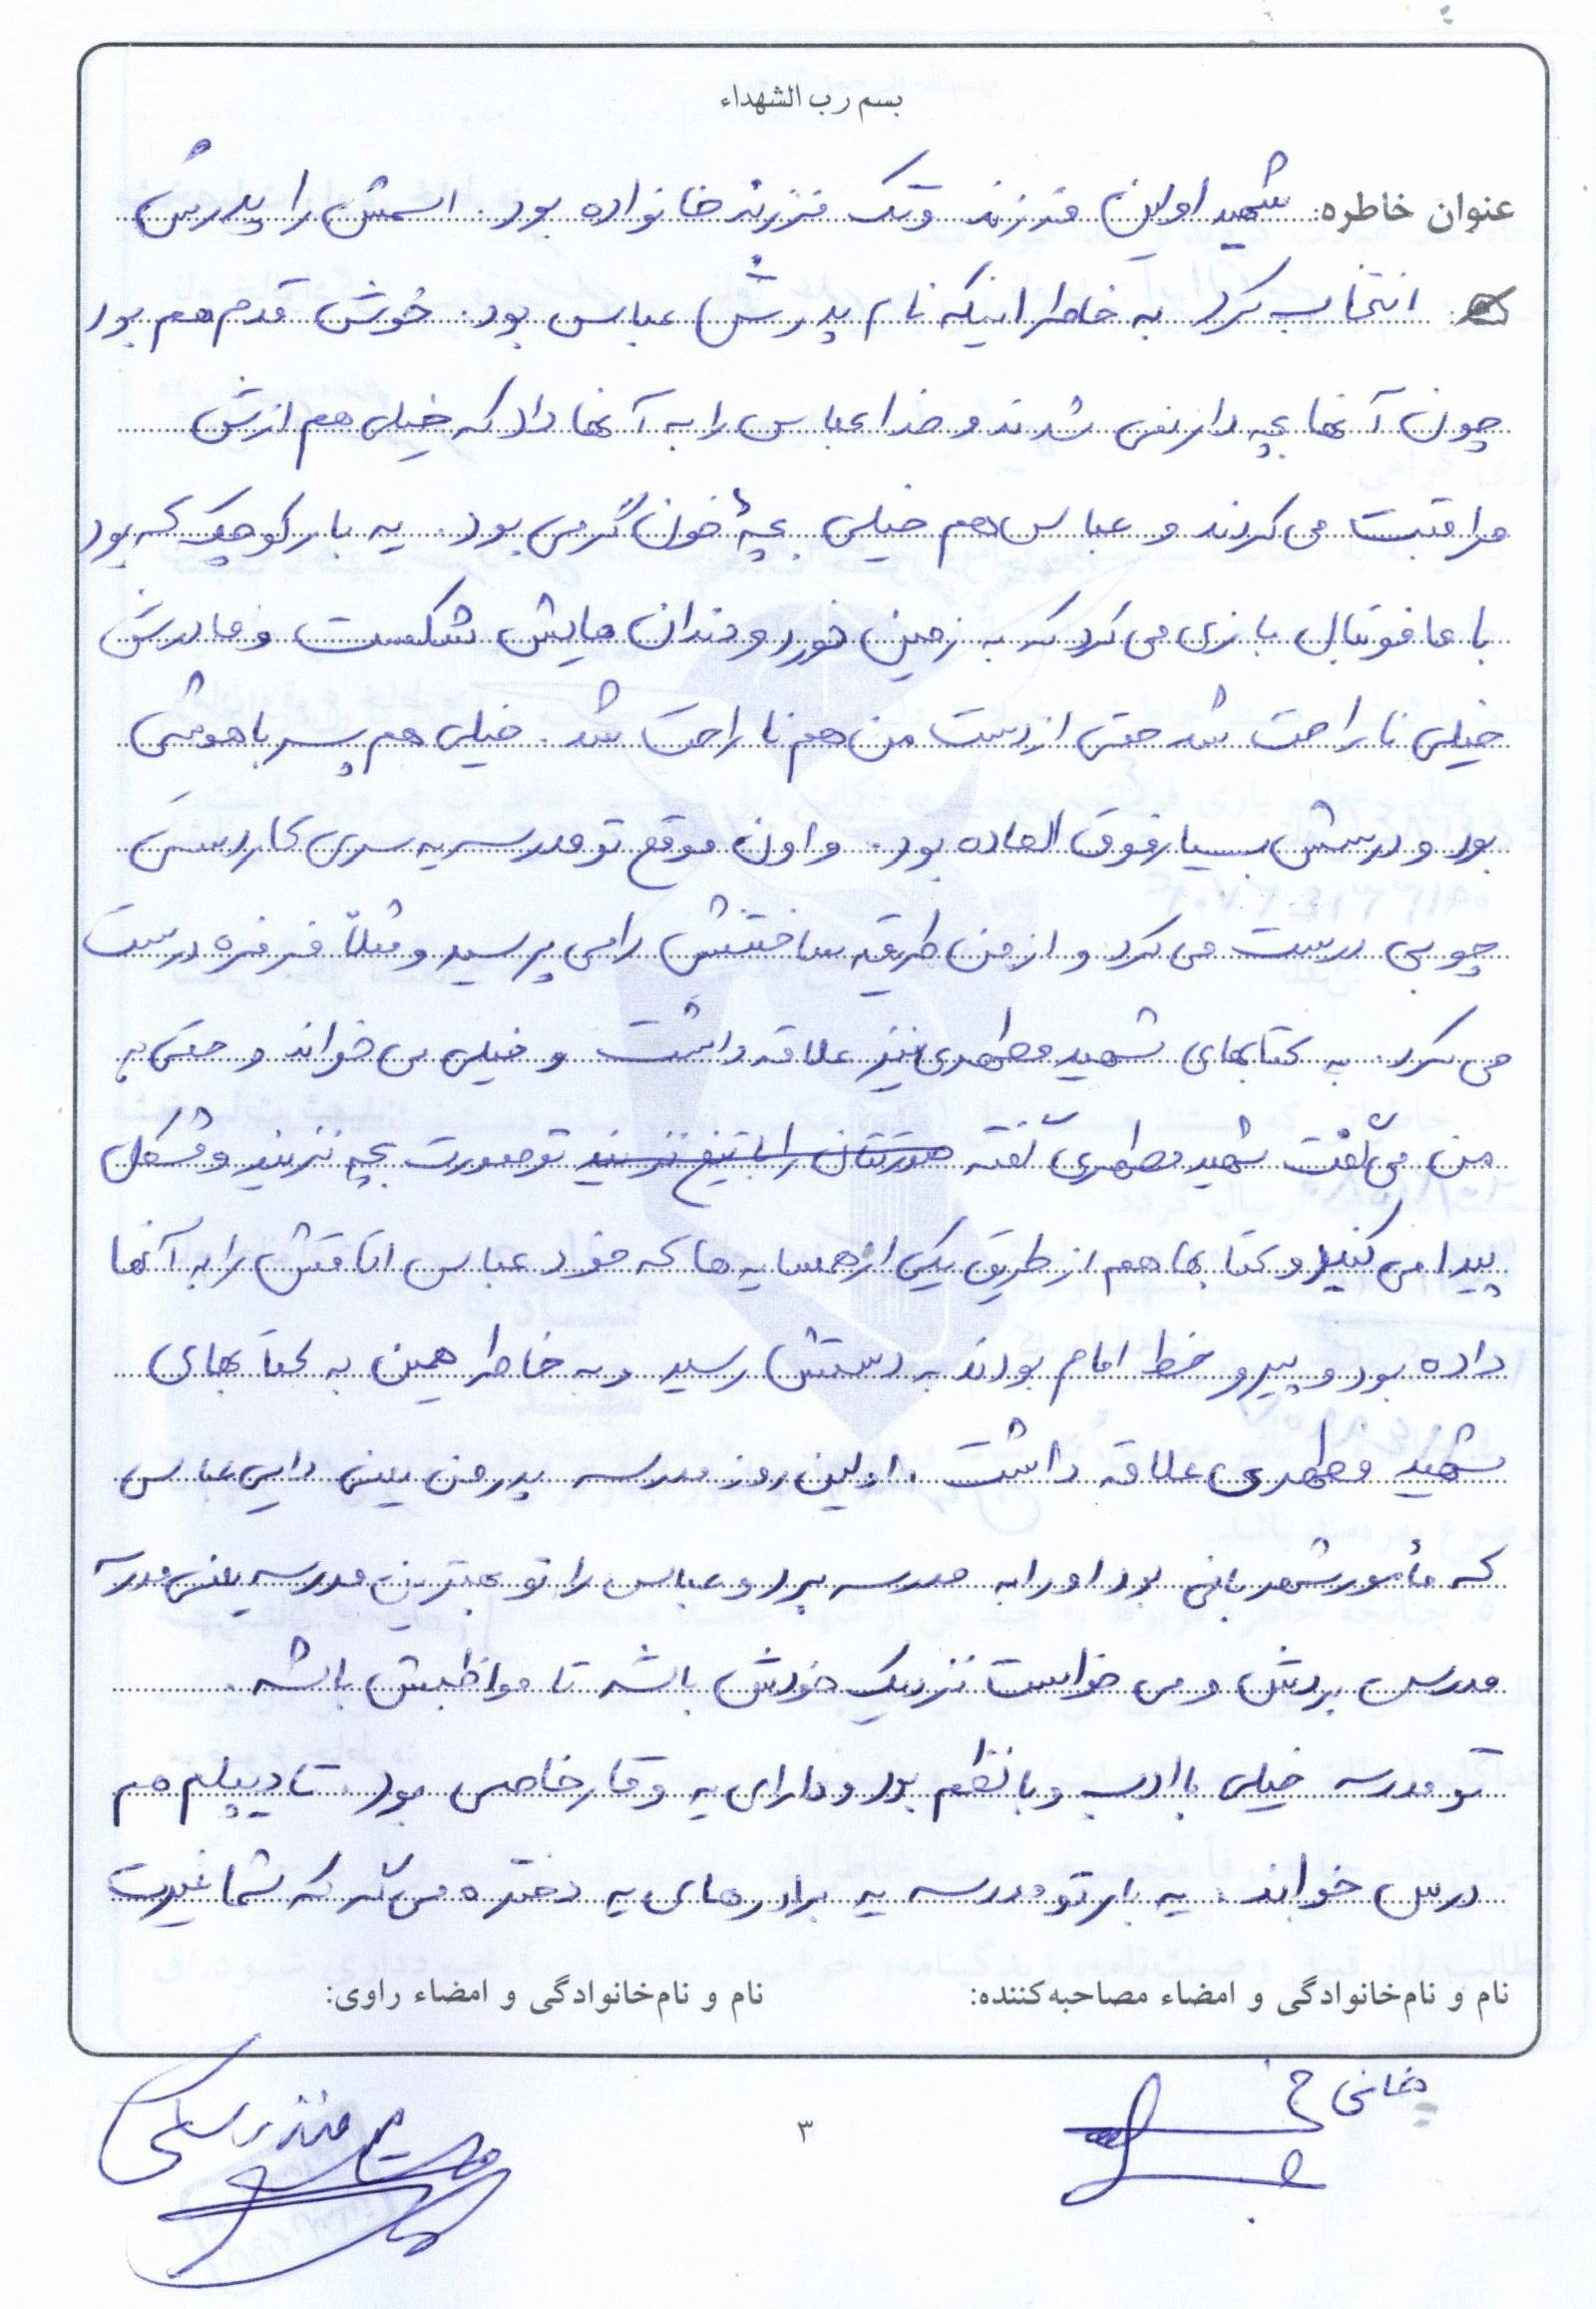 بسم رب الشهداء
عنوان خاطره: شهید اولین فرزند و تک فرزند خانواده بود. اسمش را پدرش
انتخاب کرد به خاطر اینکه نام پدرش عباس بود. خوش قدم هم بود
چون آنها بچه دار نمی شدند و خدا عباس را به آنها داد که خیلی هم ازش
مراقبت می کردند و عباس هم خیلی بچۀ خون گرمی بود. یه بار کوچک که بود
با ما فوتبال بازی می کرد که به زمین خورد و دندان هایش شکست و مادرش
خیلی ناراحت شد حتی از دست من هم ناراحت شد. خیلی هم پسر باهوشی
بود و درسش بسیار فوق العاده بود. و اون موقع تو مدرسه یه سری کاردستی
چوبی درست می کرد و از من طریقه ساختنش را می پرسید و مثلاً فرفره درست
می کرد. به کتابهای شهید مطهری نیز علاقه داشت و خیلی می خواند و حتی به
من می گفت شهید مطهری گفته صورتتان را با تیغ نزنید تو صورت بچه نزنید و مشکل
پیدا می کنید و کتابها هم از طریق یکی از همسایه ها که خود عباس اتاقش را به آنها
داده بود و پیرو خط امام بودند به دستش رسید و به خاطر همین به کتابهای
شهید مطهری علاقه داشت. اولین روز مدرسه پدر من یعنی دایی عباس
که مأمور شهربانی بود او را به مدرسه برد و عباس را تو بهترین مدرسه یعنی مدرسه
مدرس بردش و می خواست نزدیک خودش باشه تا مواظبش باشه.
تو مدرسه خیلی با ادب و با نظم بود و دارای یه وقار خاصی بود. تا دیپلم هم
درس خواند. یه بار تو مدرسه به برادرهای یه دختره می گه که شما غیرت
نام و نام‌خانوادگی و امضاء مصاحبه‌کننده: نام و نام‌خانوادگی و امضاء راوی:
۳